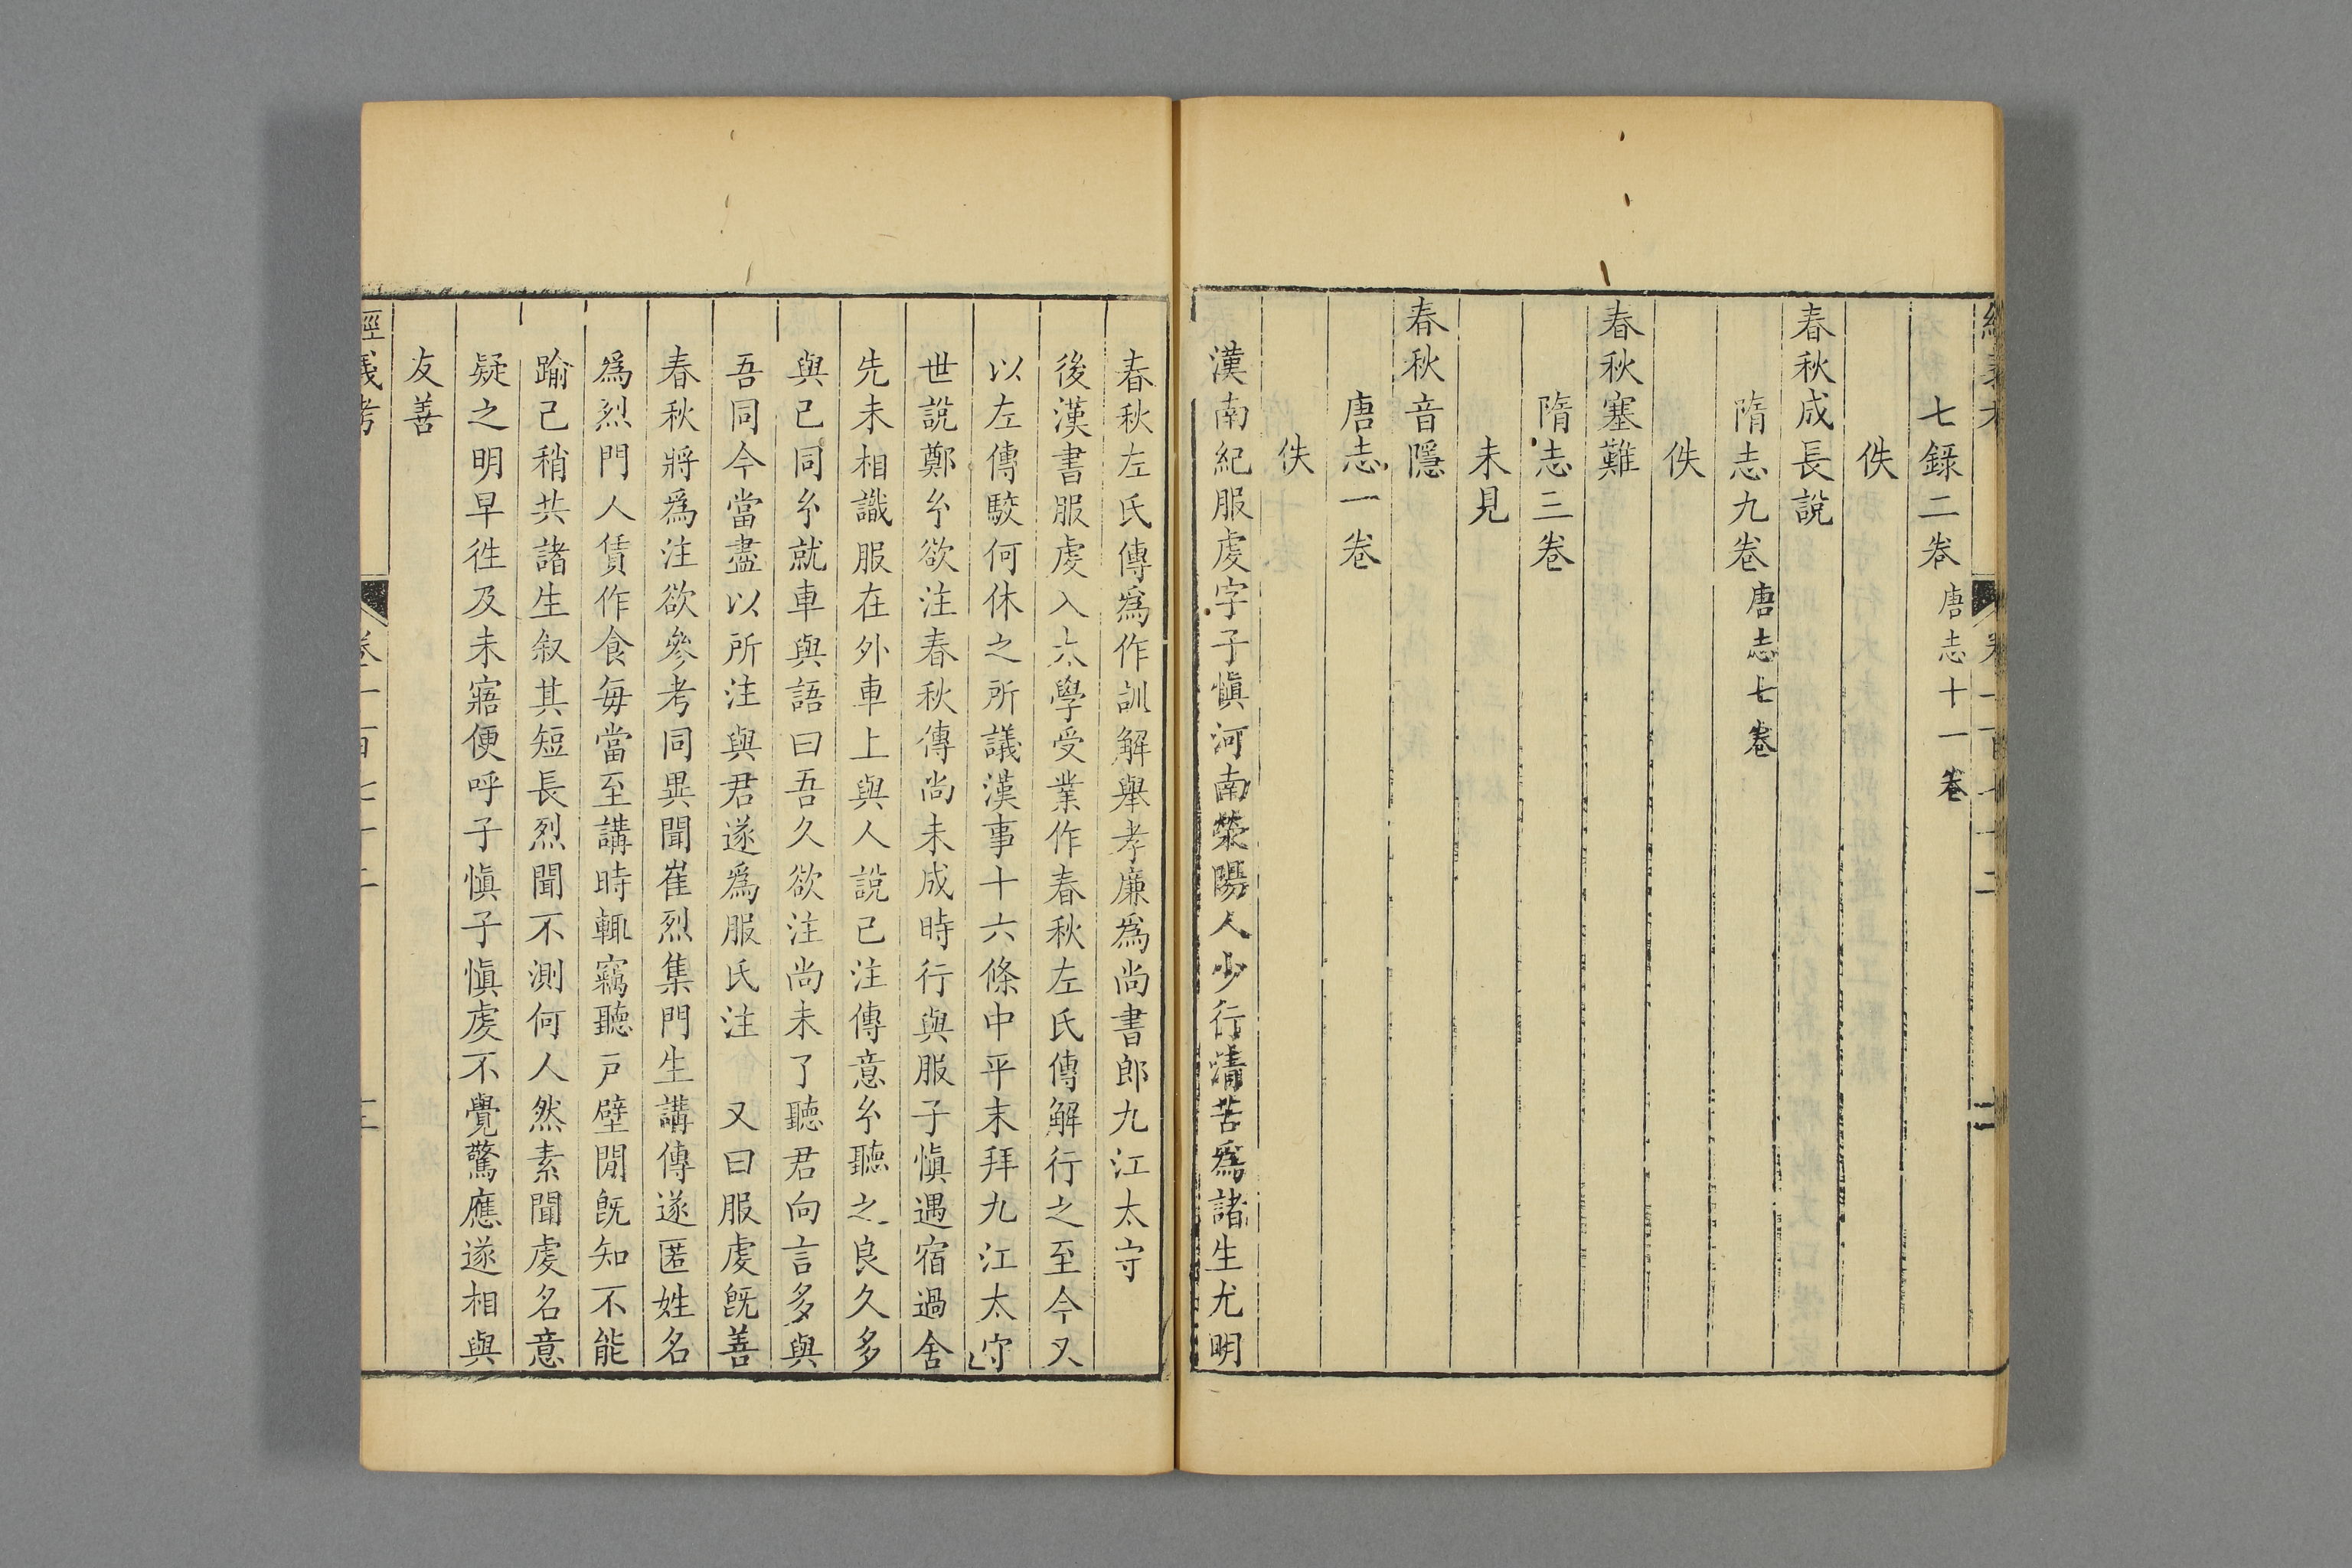 七錄二卷唐志十一卷
佚
春秋成長說
隋志九卷唐志七卷
佚
春秋塞難
隋志三卷
未見
春秋音隱
唐志一卷
佚
漢南紀服虔字子愼河南滎陽人少行淸苦爲諸生尤明
春秋左氏傳爲作訓解舉孝廉爲尚書郎九江太守
後漢書服虔入太學受業作春秋左氏傳解行之至今又
以左傳駮何休之所議漢事十六條中平末拜九江太守
世說鄭𤣥欲注春秋傳尚未成時行與服子愼遇宿過舍
先未相識服在外車上與人說己注傳意𤣥聽之良久多
與已同𤣥就車與語曰吾久欲注尚未了聽君向言多與
吾同今當盡以所注與君遂爲服氏注 又曰服虔旣善
春秋將爲注欲參考同異聞崔烈集門生講傳遂匿姓名
爲烈門人賃作食每當至講時輒竊聽戸壁閒旣知不能
踰己稍共諸生叙其短長烈聞不測何人然素聞虔名意
疑之明早徃及未寤便呼子愼子愼虔不覺驚應遂相與
友善
經義考 卷一百七十二 三